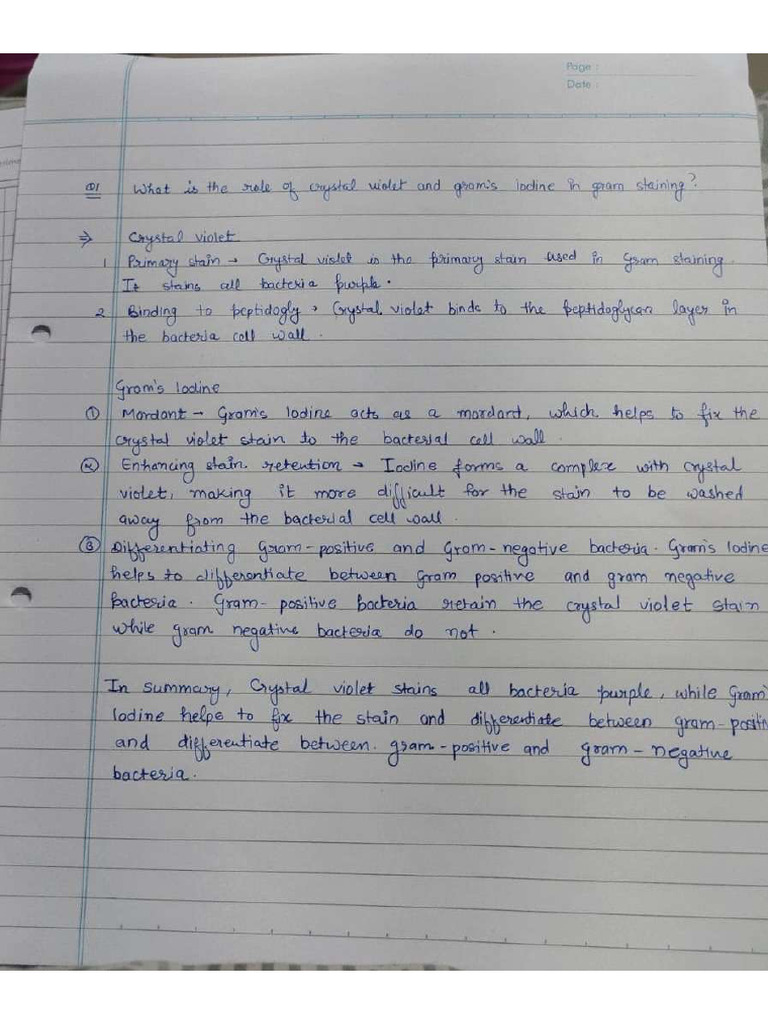 Page :
Date :
Q1 What is the role of crystal violet and gram's Iodine in gram staining?
⇒ Crystal violet
1. Primary stain → Crystal violet is the primary stain used in Gram staining.
It stains all bacteria purple.
2. Binding to peptidogly → Crystal violet binds to the peptidoglycan layer in
the bacteria cell wall.
Gram's Iodine
① Mordant – Gram's Iodine acts as a mordant, which helps to fix the
crystal violet stain to the bacterial cell wall.
② Enhancing stain retention → Iodine forms a complex with crystal
violet, making it more difficult for the stain to be washed
away from the bacterial cell wall.
③ Differentiating Gram-positive and Gram-negative bacteria. Gram's Iodine
helps to differentiate between Gram positive and gram negative
Bacteria. Gram-positive bacteria retain the crystal violet stain
while gram negative bacteria do not.
In summary, Crystal violet stains all bacteria purple, while Gram's
Iodine helps to fix the stain and differentiate between gram-positiv
and differentiate between gram-positive and gram-negative
bacteria.